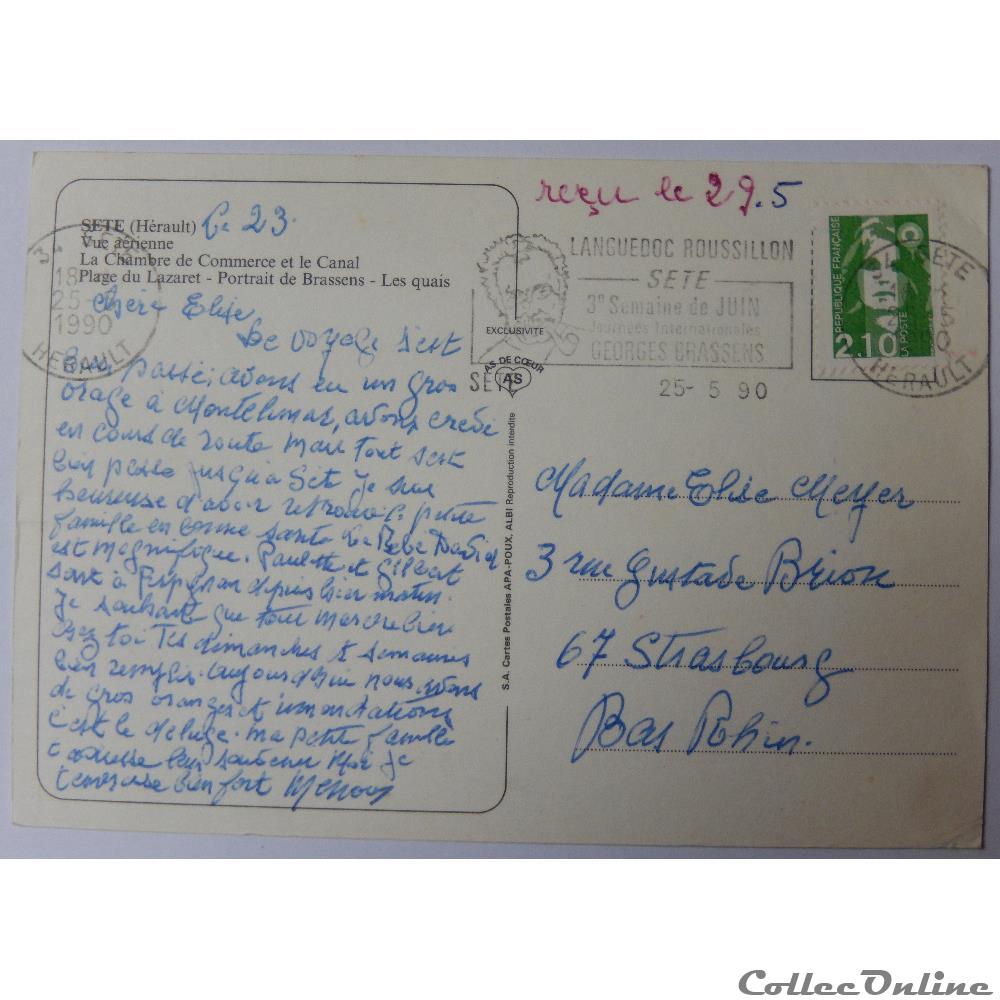 reçu le 29.5
SETE (Hérault) Le 23.
Vue aérienne
La Chambre de Commerce et le Canal
Plage du Lazaret - Portrait de Brassens - Les quais
Chère Elise,
Le voyage s'est
bien passé, avons eu un gros
orage à Montélimar, avons
en cours de route mais tout s'est
bien passé jusqu'à Sète je suis
heureuse d'avoir retrouvé la petite
famille en bonne santé Le Bébé David
est magnifique. Paulette et Gilbert
sont à Perpignan depuis hier matin.
Je souhaite que tout marche bien
chez toi Tes dimanches & semaines
bien remplis. aujourd'hui nous avons
de gros orages et inondations
c'est le déluge. ma petite famille
t'adresse leur je
t'embrasse bien fort
3
SETE
18
25-
1990
HERAULT
LANGUEDOC ROUSSILLON
SETE
3e Semaine de JUIN
Journées Internationales
GEORGES BRASSENS
SETE
25- 5 90
EXCLUSIVITE
AS DE CŒUR
AS
S.A. Cartes Postales APA-POUX, ALBI Reproduction interdite
REPUBLIQUE FRANÇAISE
2.10
LA POSTE
SETE
HERAULT
Madame Elise Meyer
3 rue Gustave Brion
67 Strasbourg
Bas Rhin.
CollecOnline